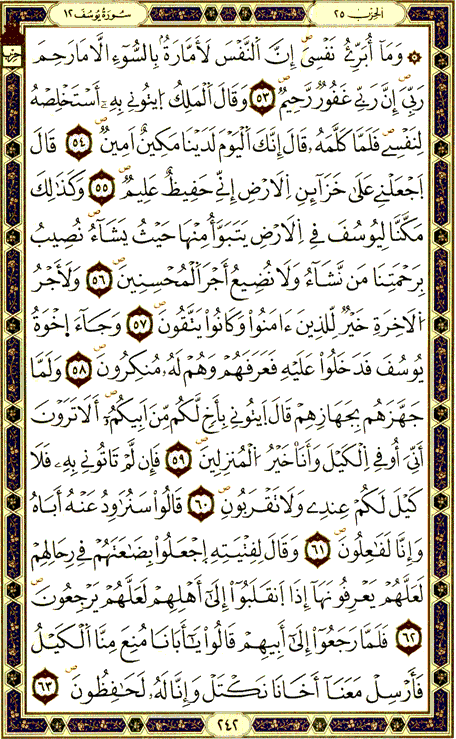 الحزب ٢٥
سُورَةُ يُوسُفَ ١٢
۞ وَمَآ أُبَرِّئُ نَفْسِيَ إِنَّ اَ۬لنَّفْسَ لَأَمَّارَةُۢ بِالسُّوٓءِ الَّا مَا رَحِمَ
رَبِّيَ إِنَّ رَبِّے غَفُورٞ رَّحِيمٞ ٥٣ وَقَالَ اَ۬لْمَلِكُ اُ۪يتُونِے بِهِۦٓ أَسْتَخْلِصْهُ
لِنَفْسِے فَلَمَّا كَلَّمَهُۥ قَالَ إِنَّكَ اَ۬لْيَوْمَ لَدَيْنَا مَكِينٌ اَمِينٞ ٥٤ قَالَ
اَ۪جْعَلْنِے عَلَىٰ خَزَآئِنِ اِ۬لَارْضِ إِنِّے حَفِيظٌ عَلِيمٞ ٥٥ وَكَذَٰلِكَ
مَكَّنَّا لِيُوسُفَ فِے اِ۬لَارْضِ يَتَبَوَّأُ مِنْهَا حَيْثُ يَشَآءُ نُصِيبُ
بِرَحْمَتِنَا مَن نَّشَآءُ وَلَا نُضِيعُ أَجْرَ اَ۬لْمُحْسِنِينَ ٥٦ وَلَأَجْرُ
اُ۬لَاخِرَةِ خَيْرٞ لِّلذِينَ ءَامَنُواْ وَكَانُواْ يَتَّقُونَ ٥٧ وَجَآءَ إِخْوَةُ
يُوسُفَ فَدَخَلُواْ عَلَيْهِ فَعَرَفَهُمْ وَهُمْ لَهُۥ مُنكِرُونَ ٥٨ وَلَمَّا
جَهَّزَهُم بِجَهَازِهِمْ قَالَ اَ۪يتُونِے بِأَخٖ لَّكُم مِّنَ اَبِيكُمُۥٓ أَلَا تَرَوْنَ
أَنِّيَ أُوفِے اِ۬لْكَيْلَ وَأَنَا۠ خَيْرُ اُ۬لْمُنزِلِينَ ٥٩ فَإِن لَّمْ تَاتُونِے بِهِۦ فَلَا
كَيْلَ لَكُمْ عِندِے وَلَا تَقْرَبُونِ ٦٠ قَالُواْ سَنُرَٰوِدُ عَنْهُ أَبَاهُ
وَإِنَّا لَفَٰعِلُونَ ٦١ وَقَالَ لِفِتْيَتِهِ اِ۪جْعَلُواْ بِضَٰعَتَهُمْ فِے رِحَالِهِمْ
لَعَلَّهُمْ يَعْرِفُونَهَآ إِذَا اَ۪نقَلَبُوٓاْ إِلَىٰٓ أَهْلِهِمْ لَعَلَّهُمْ يَرْجِعُونَ
٦٢ فَلَمَّا رَجَعُوٓاْ إِلَىٰٓ أَبِيهِمْ قَالُواْ يَٰٓأَبَانَا مُنِعَ مِنَّا اَ۬لْكَيْلُ
فَأَرْسِلْ مَعَنَآ أَخَانَا نَكْتَلْ وَإِنَّا لَهُۥ لَحَٰفِظُونَ ٦٣
٢٤٢